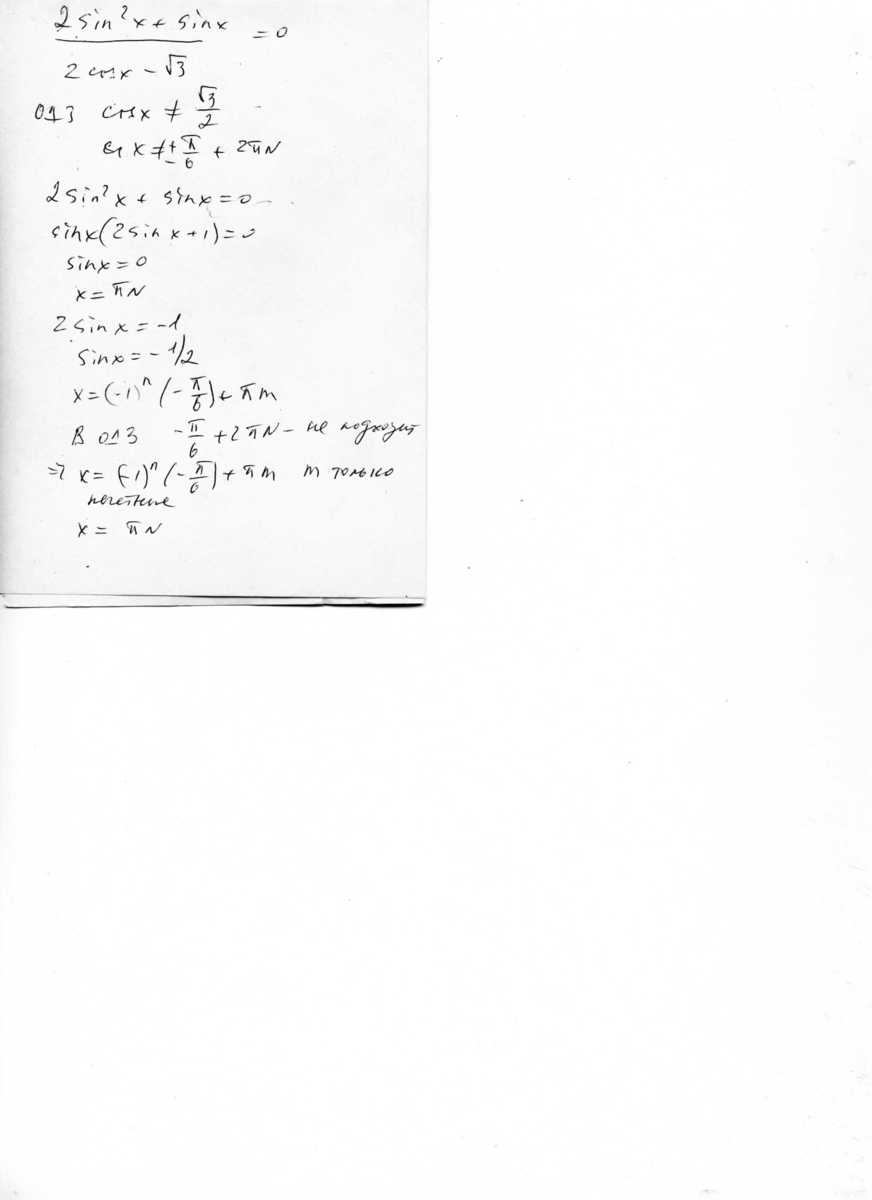 2 sin²x + sinx
———————— = 0
2 cosx - √3
ОДЗ cosx ≠ √3/2
x ≠ ± π/6 + 2πN
2 sin²x + sinx = 0
sinx(2 sin x + 1) = 0
sinx = 0
x = πN
2 sin x = -1
sinx = - 1/2
x = (-1)ⁿ (- π/6) + πm
В ОДЗ - π/6 + 2πN - не подходит
=> x = (-1)ⁿ (- π/6) + πm m только
нечетные
x = πN